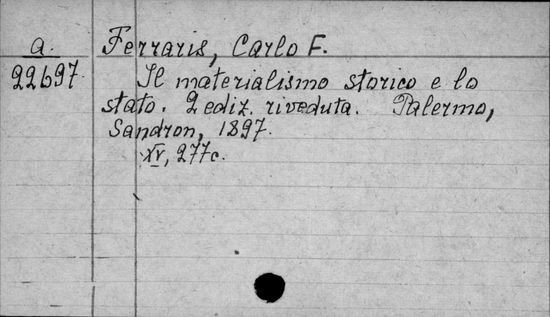 a. Ferraris, Carlo F.
22697 Il materialismo storico e lo
stato. 2 ediz. riveduta. Palermo,
Sandron, 1897.
XV, 277c.